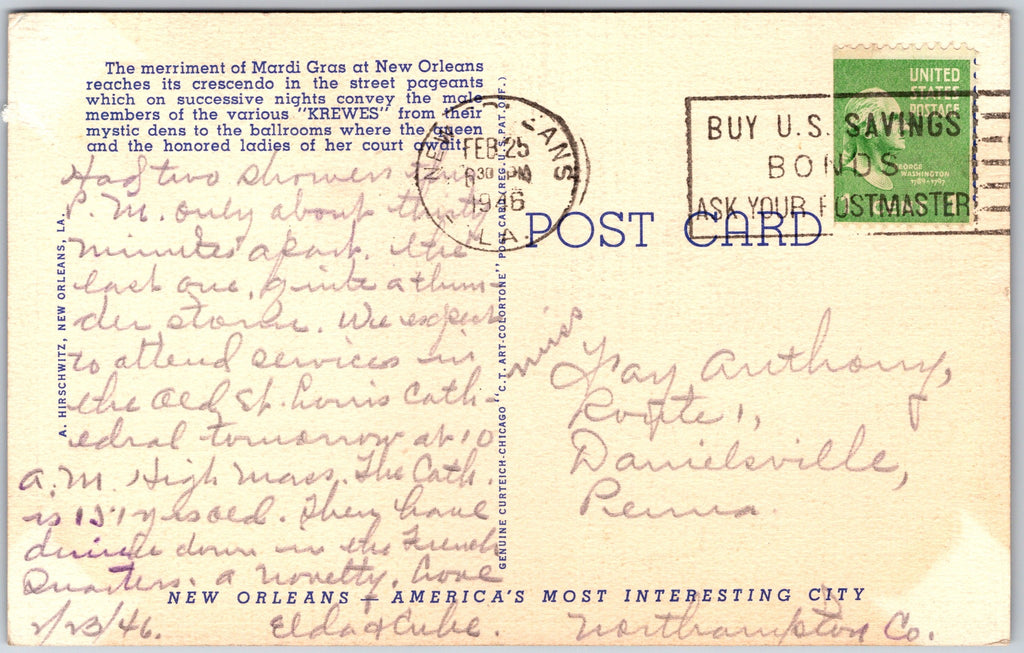 The merriment of Mardi Gras at New Orleans
reaches its crescendo in the street pageants
which on successive nights convey the male
members of the various "KREWES" from their
mystic dens to the ballrooms where the queen
and the honored ladies of her court await.
Had two showers
P. M. only about
minutes apart. The
last one, quite a thun-
der storm. We expect
to attend services in
the Old St. Louis Cath-
edral tomorrow at 10
A. M. High Mass. The Cath.
is 151 yrs old. They have
down in the French
Quarters. a novelty. Love
2/23/46. Elda & Cube.
A. HIRSCHWITZ, NEW ORLEANS, LA.
GENUINE CURTEICH-CHICAGO "C.T. ART-COLORTONE" POST CARD (REG. U.S. PAT. OFF.)
NEW ORLEANS
FEB 25
6 30 PM
1946
LA
BUY U.S. SAVINGS
BONDS
ASK YOUR POSTMASTER
UNITED
STATES
POSTAGE
GEORGE
WASHINGTON
1789-1797
POST CARD
Miss
Fay Anthony,
Route 1,
Danielsville,
Penna.
Northampton Co.
NEW ORLEANS — AMERICA'S MOST INTERESTING CITY